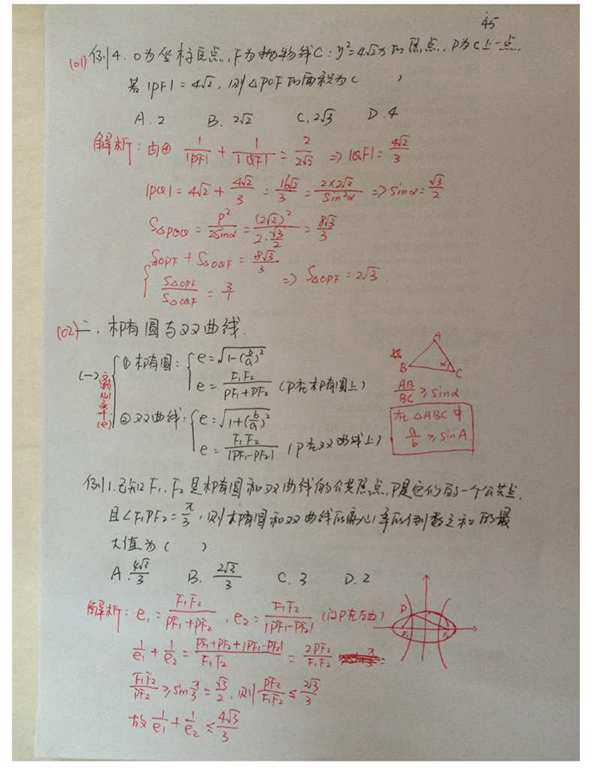 45
(01) 例4. O为坐标原点,F为抛物线C:y²=4√2x的焦点,P为C上一点,
若|PF|=4√2,则△POF的面积为( )
A. 2 B. 2√2 C. 2√3 D. 4
解析:由 1/|PF| + 1/|QF| = 2/2√2 => |QF| = 4√2/3
|PQ| = 4√2 + 4√2/3 = 16√2/3 = 2×2√2/sin²α => sinα = √3/2
S△POQ = P²/2sinα = (2√2)²/2·√3/2 = 8√3/3
{ S△OPF + S△OQF = 8√3/3
S△OPF/S△OQF = 3/1 => S△OPF = 2√3
(02) 二、椭圆与双曲线.
(一) 离心率(e)
① 椭圆: { e = √1-(b/a)²
e = F₁F₂/PF₁+PF₂ (P在椭圆上)
② 双曲线: { e = √1+(b/a)²
e = F₁F₂/|PF₁-PF₂| (P在双曲线上)
A
B α C
AB/BC ≥ sinα
在△ABC中
a/b ≥ sinA
例1. 已知F₁、F₂是椭圆和双曲线的公共焦点,P是它们的一个公共点,
且∠F₁PF₂=π/3,则椭圆和双曲线的离心率的倒数之和的最
大值为( )
A. 4√3/3 B. 2√3/3 C. 3 D. 2
解析: e₁ = F₁F₂/PF₁+PF₂, e₂ = F₁F₂/|PF₁-PF₂| (设P在左边)
P
1/e₁ + 1/e₂ = PF₁+PF₂+|PF₁-PF₂|/F₁F₂ = 2PF₂/F₁F₂
F₁F₂/PF₂ ≥ sinπ/3 = √3/2, 则 PF₂/F₁F₂ ≤ 2√3/3
故 1/e₁ + 1/e₂ ≤ 4√3/3